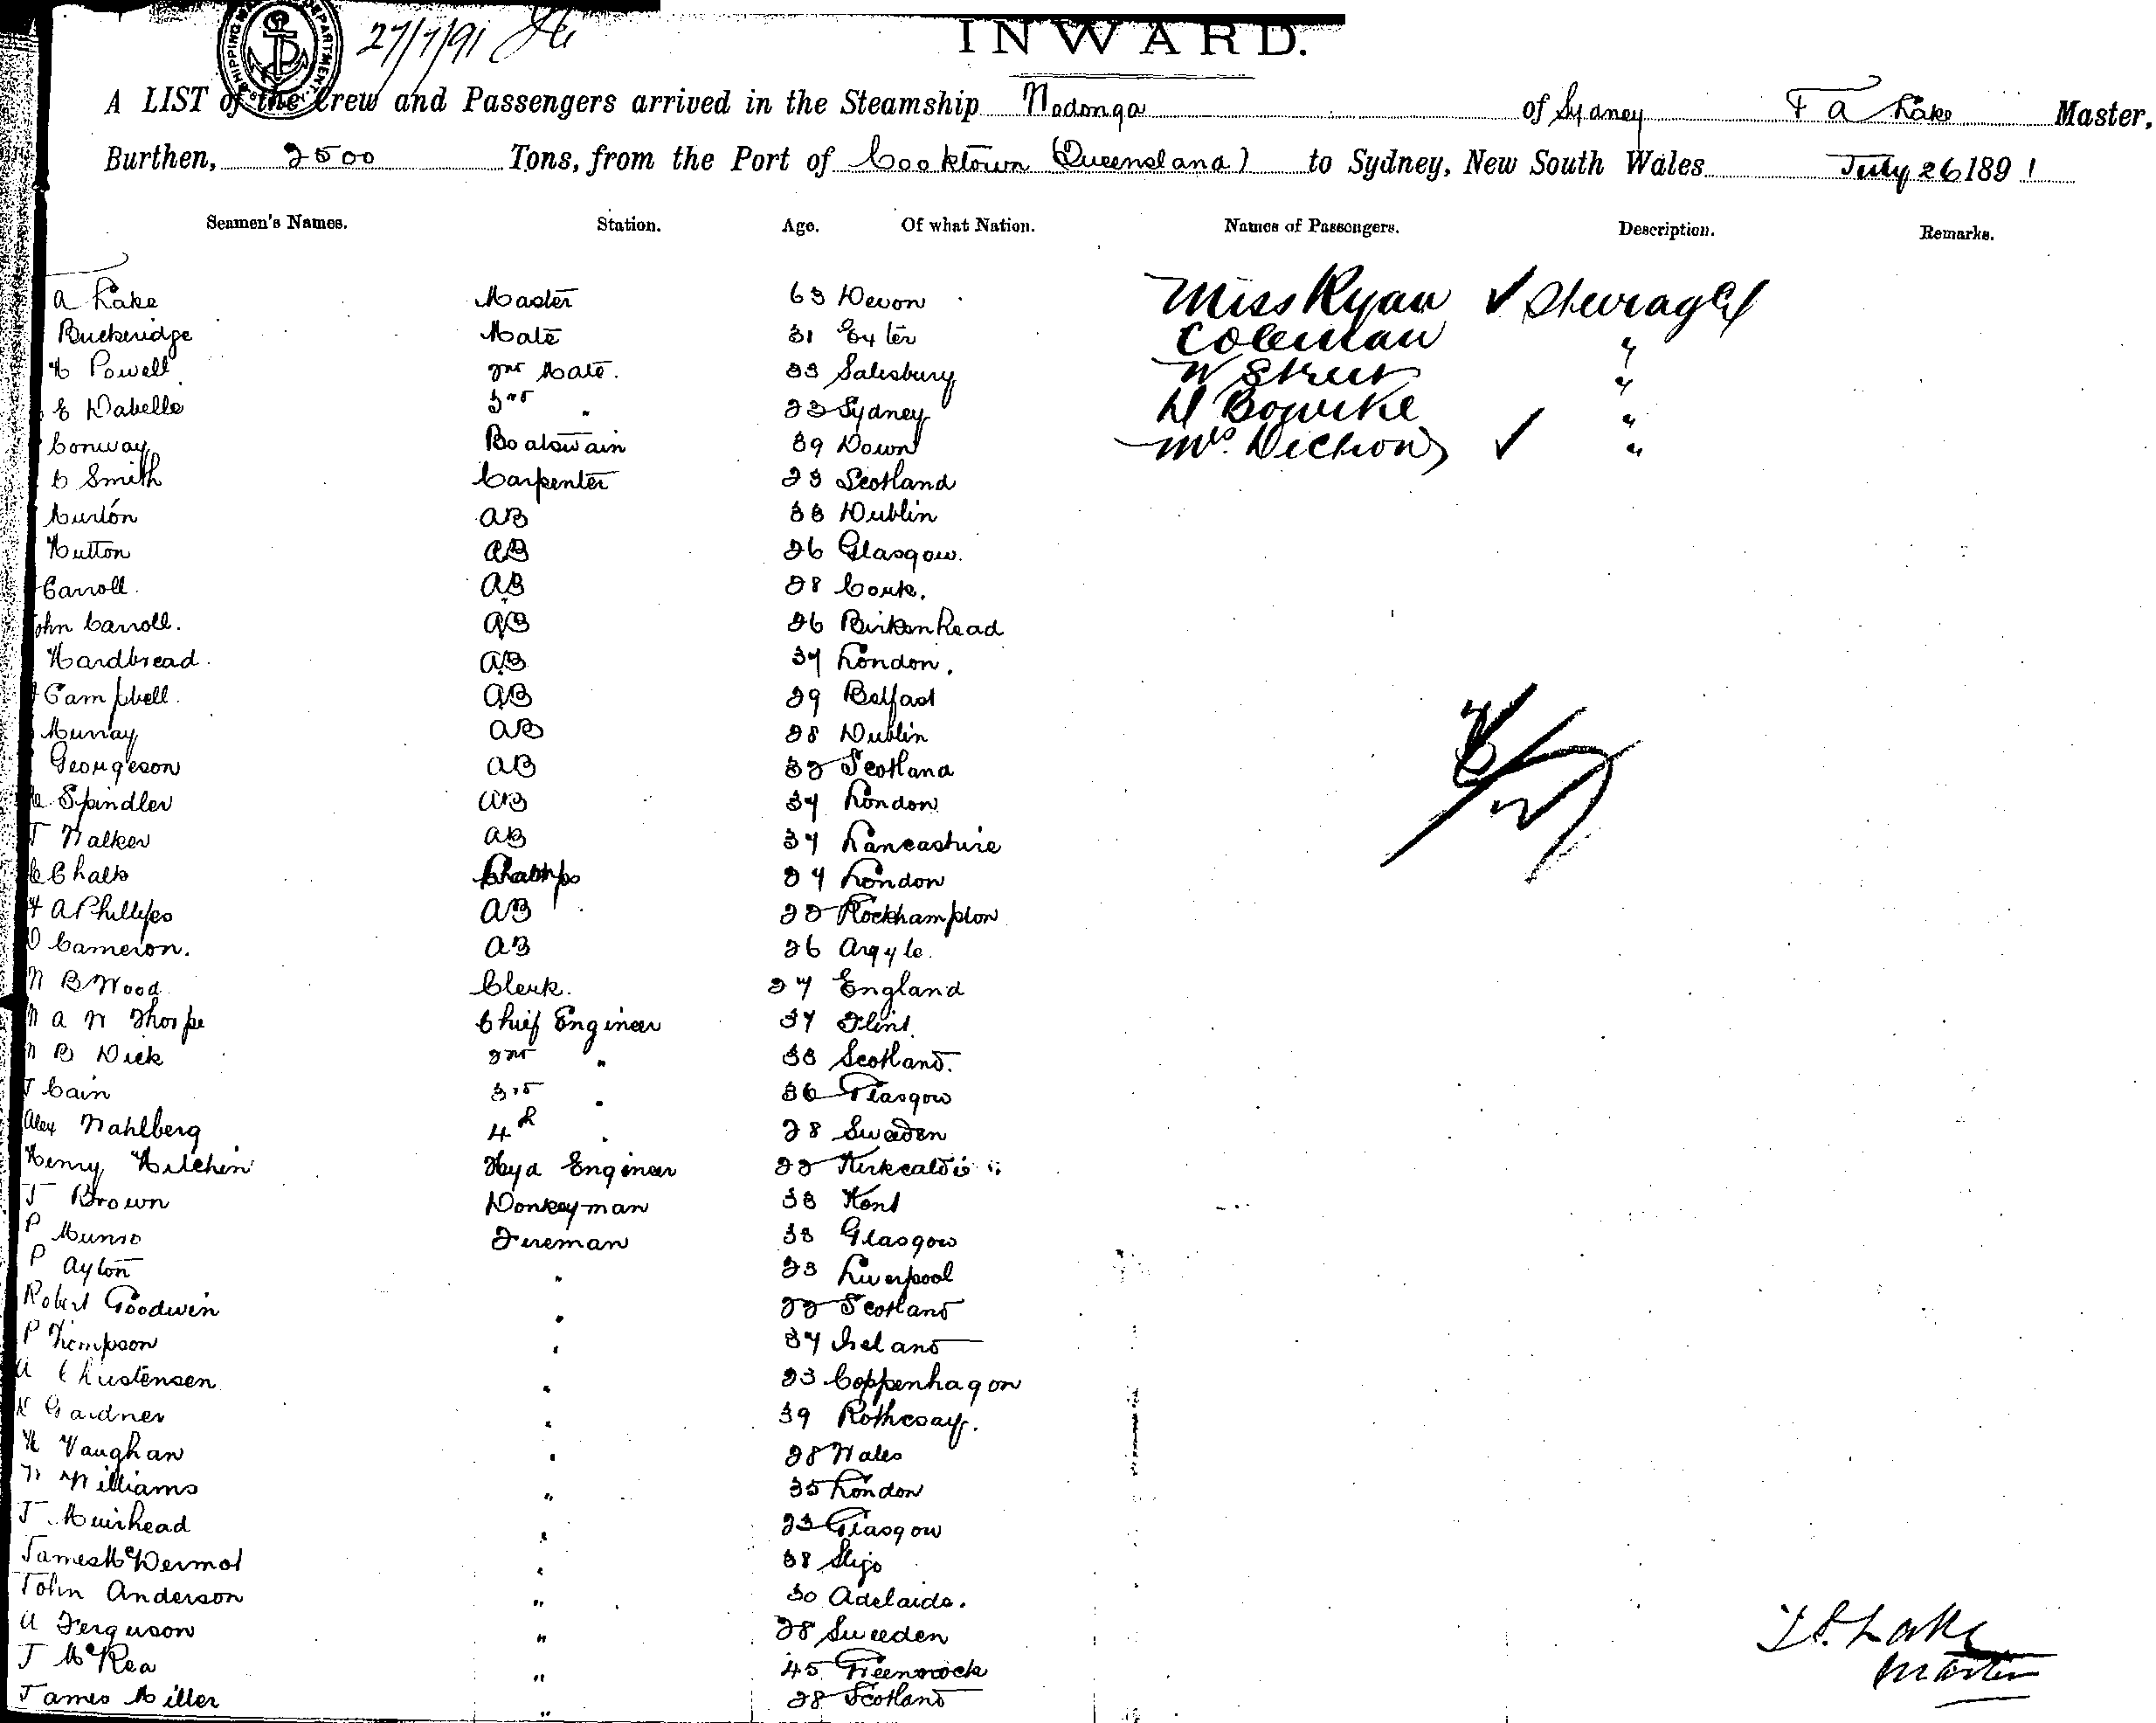 SHIPPING MASTER'S DEPARTMENT
27/7/91
INWARD.
A LIST of the Crew and Passengers arrived in the Steamship Wodonga of Sydney F A Lake Master,
Burthen, 2500 Tons, from the Port of Cooktown (Queensland) to Sydney, New South Wales July 26 1891
Seamen's Names. Station. Age. Of what Nation. Names of Passengers. Description. Remarks.
A Lake Master 63 Devon Miss Ryan ✓ Steerage
Buckeridge Mate 31 Exter Coleman "
H Powell 2nd Mate. 33 Salesbury W Street "
E Dabelle 3rd " 23 Sydney D Bourke "
Conway Boatswain 39 Down Mrs. Dickson ✓ "
C Smith Carpenter 23 Scotland
Murton AB 33 Dublin
Hutton AB 26 Glasgow.
Carroll. AB 28 Cork.
John Carroll. AB 26 Birkenhead
Hardbread. AB 37 London.
Campbell. AB 29 Belfast
Murray AB 28 Dublin
Georgeson AB 32 Scotland
Spindler AB 37 London
T Walker AB 37 Lancashire
Chalk 27 London
A Phillips AB 22 Rockhampton
D Cameron. AB 26 Argyle.
W B Wood Clerk. 27 England
W A W Thorpe Chief Engineer 37 Flint
W B Dick 2nd " 33 Scotland.
J Cain 3rd " 36 Glasgow
Alex Wahlberg 4th " 28 Sweden
Henry Hitchin Hyd Engineer 22 Kirkcaldie
J Brown Donkeyman 38 Kent
P Munro Fireman 38 Glasgow
P Ayton " 23 Liverpool
Robert Goodwin " 22 Scotland
P Thompson " 37 Ireland
A Christensen " 23 Coppenhagon
Gardner " 39 Rothesay.
H Vaughan " 28 Wales
W Williams " 35 London
J Muirhead " 23 Glasgow
James McDermot " 38 Sligo
John Anderson " 30 Adelaide.
A Ferguson " 28 Sweeden
J McRea " 45 Greenock
James Miller " 28 Scotland
F A Lake
Master